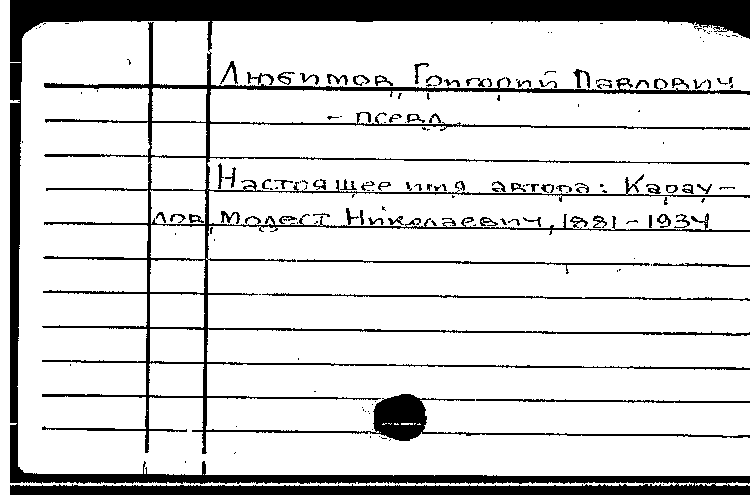 Любимов, Григорий Павлович
- псевд.
Настоящее имя автора: Карау-
лов, Модест Николаевич, 1881-1934